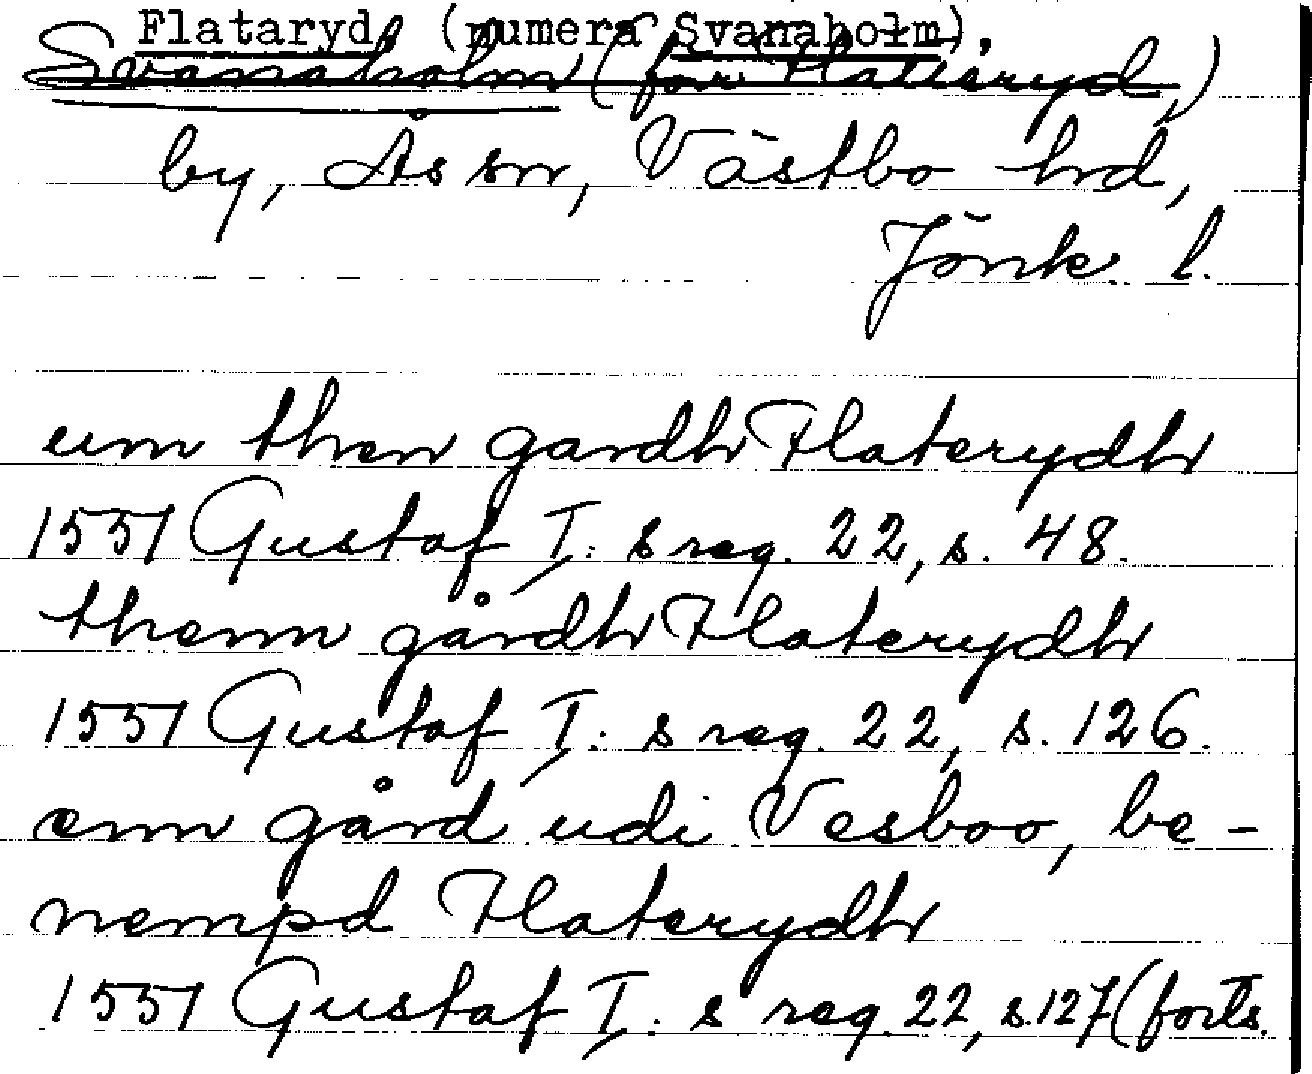 Flataryd, (numera Svanaholm),
Svanaholm (förr Flateryd,)
by, Ås sn, Västbo hd,
Jönk. l.
um then gardh Flaterydh
1551 Gustaf I: s reg. 22, s. 48.
thenn gårdh Flaterydh
1551 Gustaf I: s reg. 22, s. 126.
enn gård udi Vesboo, be-
nempd Flaterydh
1551 Gustaf I: s reg. 22, s. 127 (forts.